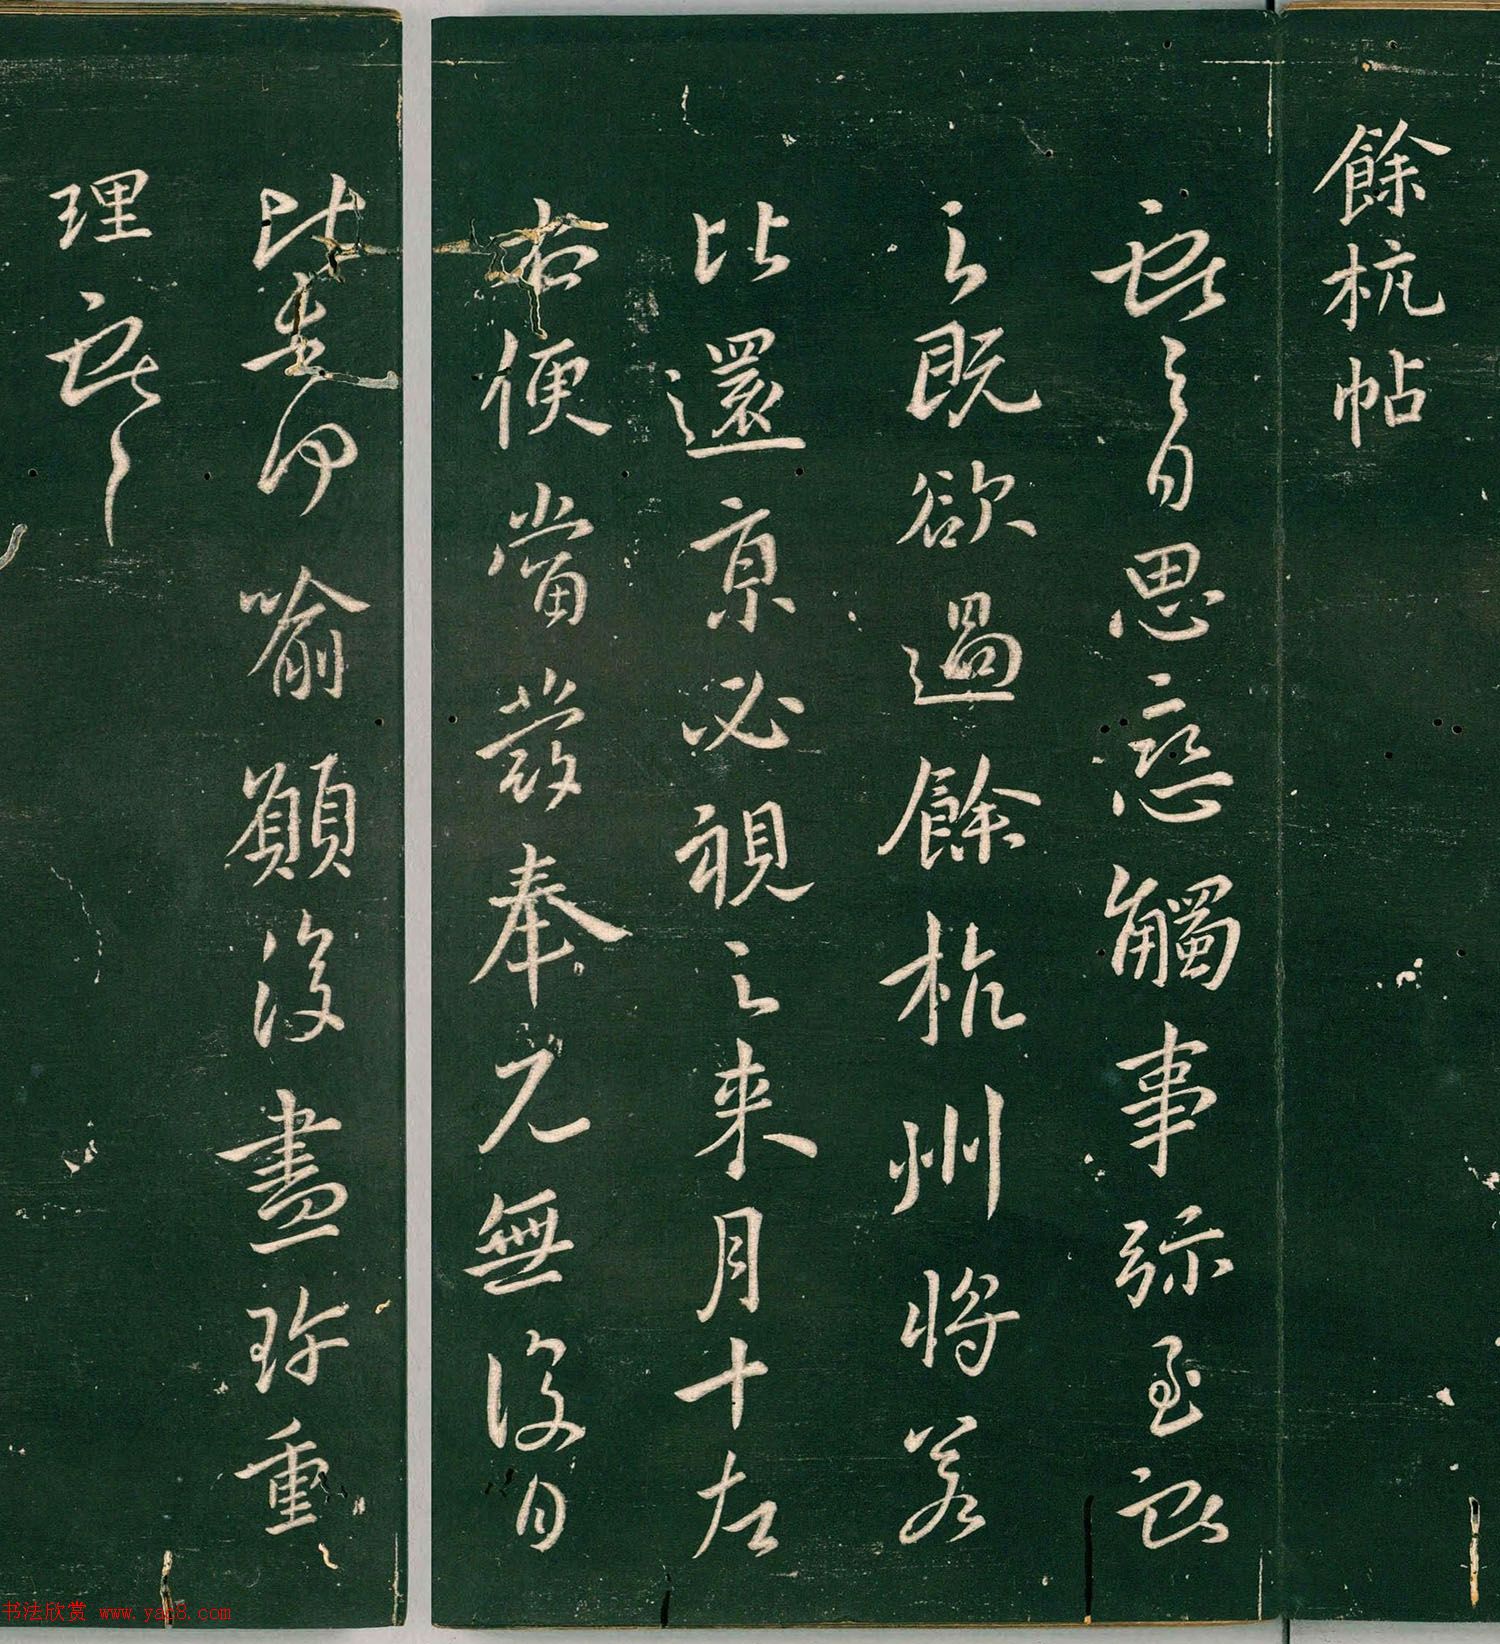 餘杭帖
日思戀觸事弥至
之既欲過餘杭州將若
比還京必視之來月十左
右便當發奉見無復日
比喻願復盡珍重
理
书法欣赏 www.yac8.com